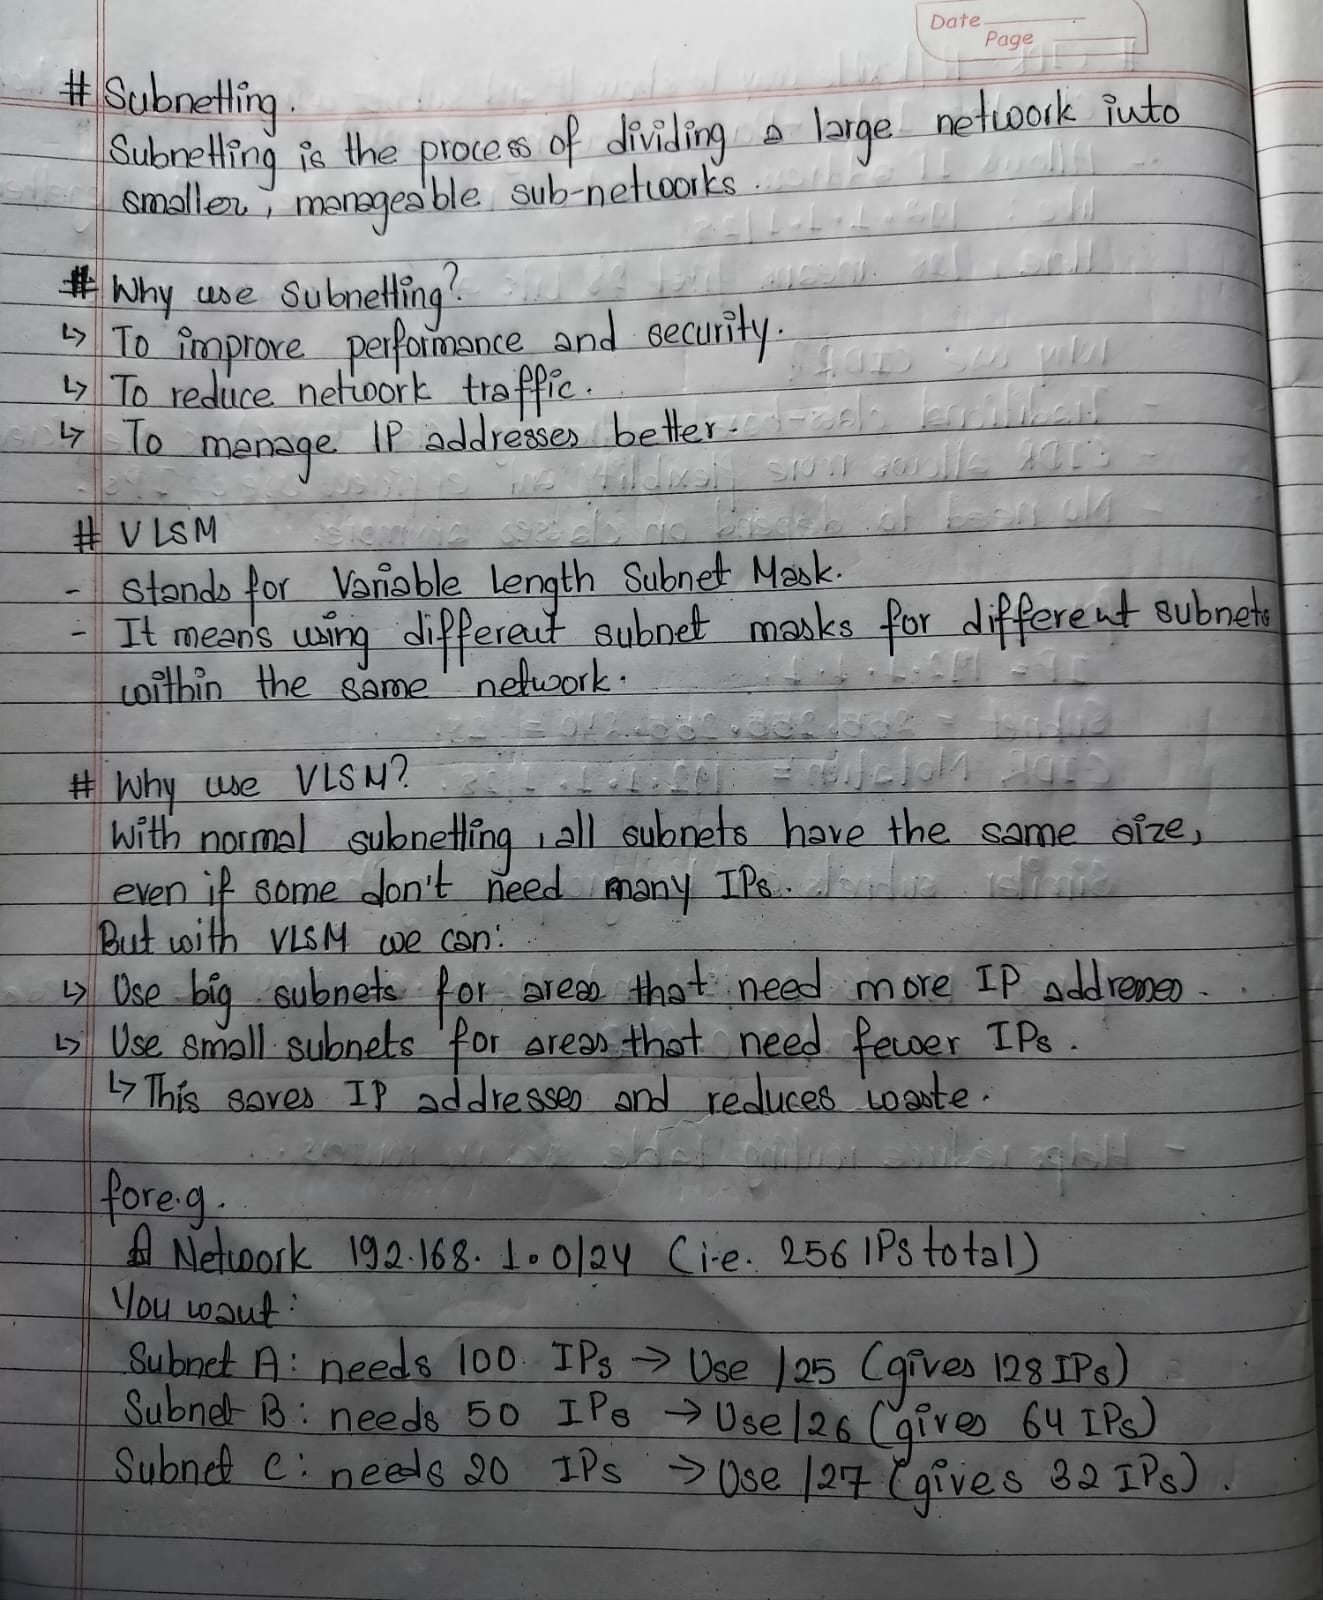 Date
Page
# Subnetting.
Subnetting is the process of dividing a large network into
smaller, manageable sub-networks.
# Why use Subnetting?
↳ To improve performance and security.
↳ To reduce network traffic.
↳ To manage IP addresses better.
# VLSM
- Stands for Variable Length Subnet Mask.
- It means using different subnet masks for different subnets
within the same network.
# Why use VLSM?
With normal subnetting, all subnets have the same size,
even if some don't need many IPs.
But with VLSM we can:
↳ Use big subnets for areas that need more IP addresses.
↳ Use small subnets for areas that need fewer IPs.
↳ This saves IP addresses and reduces waste.
for e.g.
A Network 192.168.1.0/24 (i.e. 256 IPs total)
You want:
Subnet A: needs 100 IPs → Use /25 (gives 128 IPs)
Subnet B: needs 50 IPs → Use /26 (gives 64 IPs)
Subnet C: needs 20 IPs → Use /27 (gives 32 IPs).